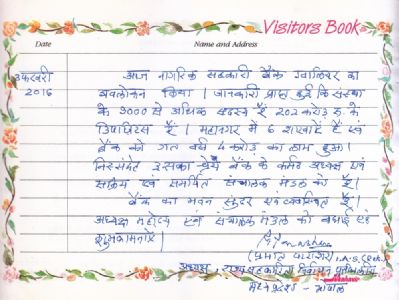 Visitors Book
Date Name and Address
3 फरवरी आज नागरिक सहकारी बैंक ग्वालियर का
2016 अवलोकन किया। जानकारी प्राप्त हुई कि संस्था
के 9000 से अधिक सदस्य हैं 202 करोड़ रु. के
डिपाजिटस हैं। महानगर में 6 शाखाएँ हैं एवं
बैंक को गत वर्ष 4 करोड़ का लाभ हुआ।
निःसंदेह इसका श्रेय बैंक के कर्मठ अध्यक्ष एवं
सक्रिय एवं समर्पित संचालक मंडल को है।
बैंक का भवन सुन्दर एवं व्यवस्थित है।
अध्यक्ष महोदय एवं संचालक मंडल को बधाई एवं
शुभकामनाएँ।
(प्रभात पाराशर) I.A.S. (Retd.)
अध्यक्ष, राज्य सहकारिता निर्वाचन प्राधिकारी
मध्यप्रदेश - भोपाल